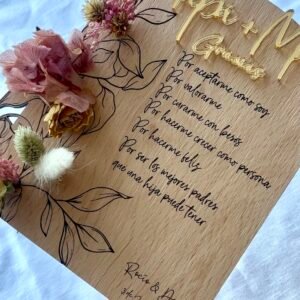 Gracias
Por aceptarme como soy
Por valorarme
Por curarme con besos
Por hacerme crecer como persona
Por hacerme feliz
Por ser los mejores padres
que una hija puede tener
Rocío &